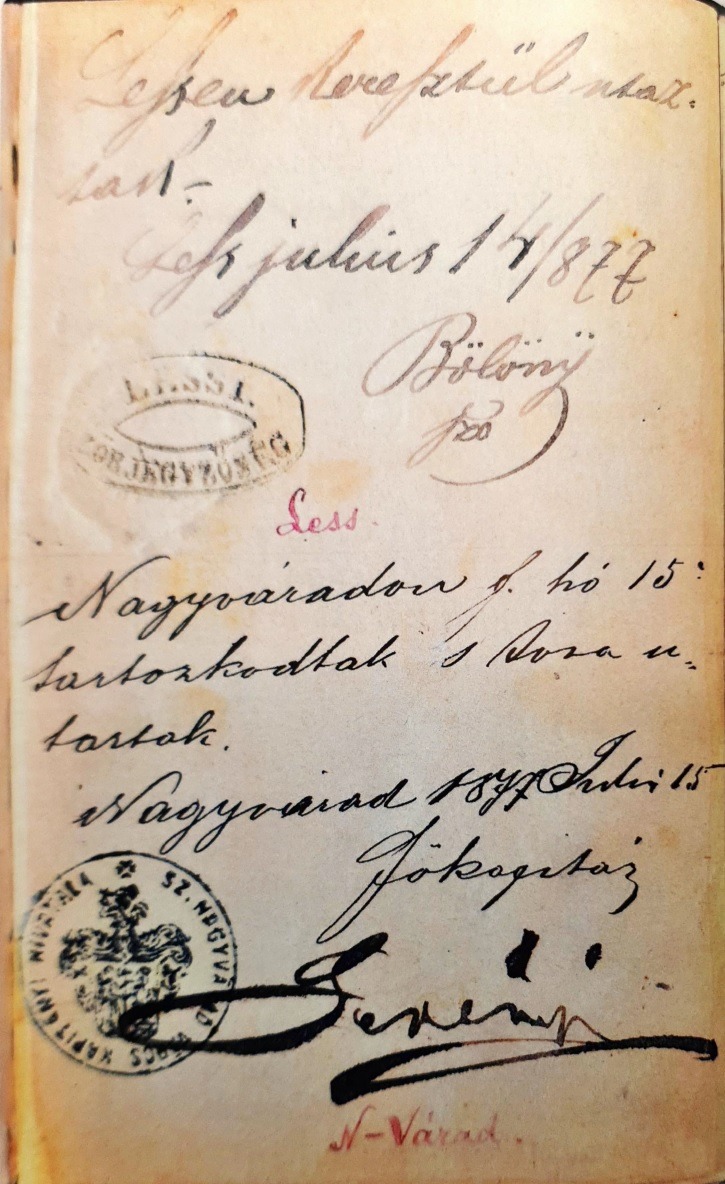 Lessen keresztül utaz-
tak.-
Less július 14/877
Bölöny
LESSI.
KÖRJEGYZŐSÉG
Less.
Nagyváradon f. hó 15
tartozkodtak s tova u-
taztak.
Nagyvárad 1877 Juli 15
Főkapitány
SZ. NAGYVÁRAD KAPITÁNYI HIVATALA
N-Várad.